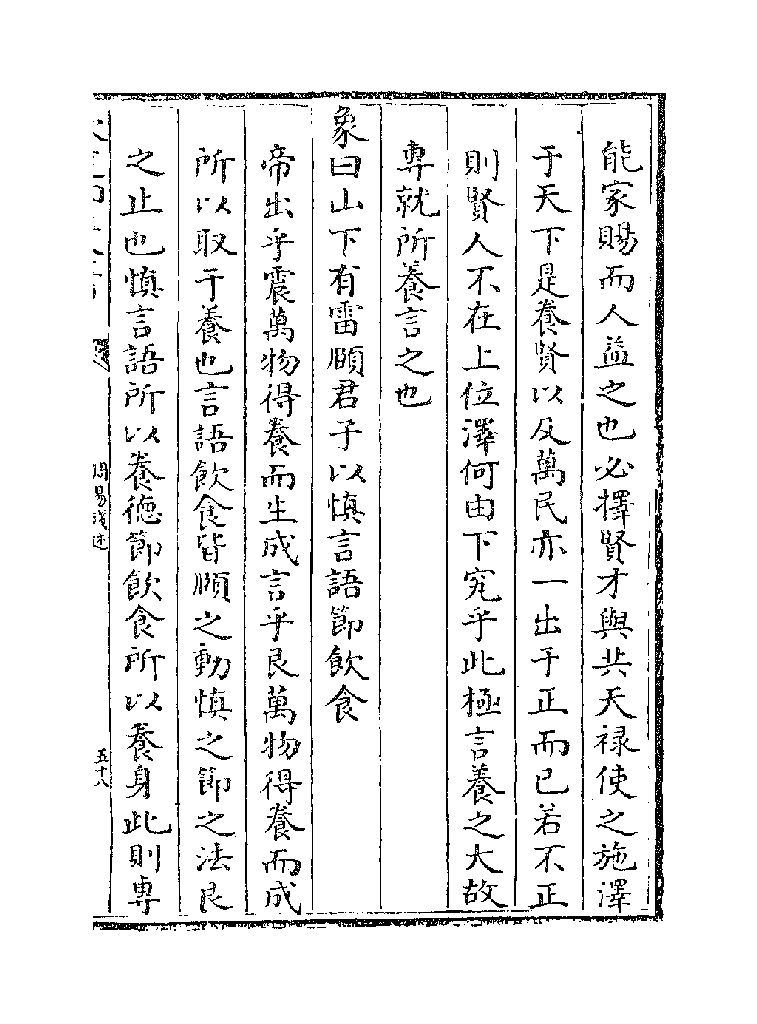 能家賜而人益之也必擇賢才與共天祿使之施澤
于天下是養賢以及萬民亦一出于正而已若不正
則賢人不在上位澤何由下究乎此極言養之大故
專就所養言之也
象曰山下有雷頤君子以慎言語節飲食
帝出乎震萬物得養而生成言乎艮萬物得養而成
所以取于養也言語飲食皆頤之動慎之節之法艮
之止也慎言語所以養德節飲食所以養身此則專
周易淺述
五十八